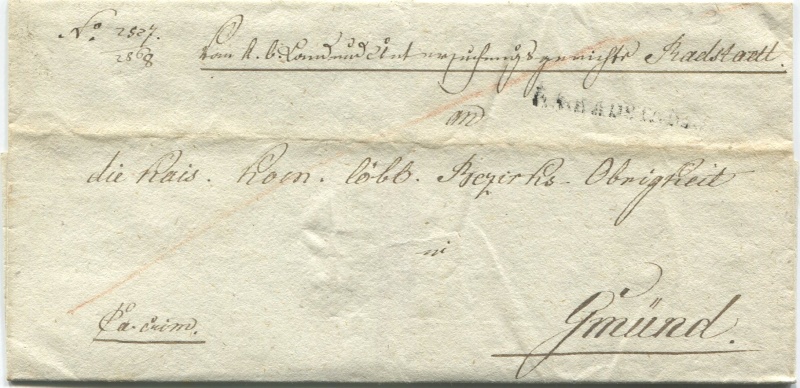 No. 2527.
2568
Vom k. b. Land und Untersuchungsgerichte Radstadt.
an
die kais. koen. löbl. Bezirks-Obrigkeit
in
Gmünd.
Ca. crim.